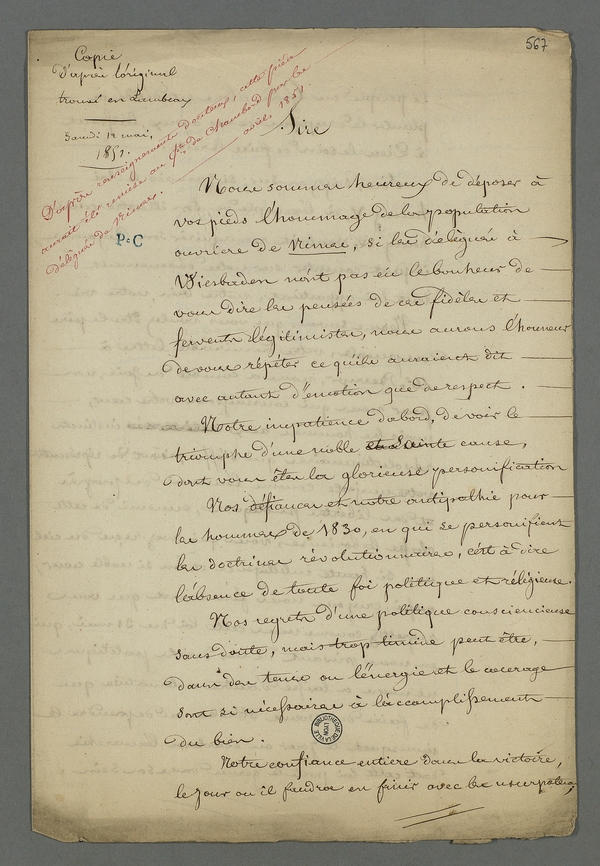 567
Copie
d'après l'original
trouvé en Lambeaux
Samedi 12 mai,
1851.
D'après renseignements douteux, cette pièce
aurait été remise au Cte de Chambord par les
Délégués de Nimes. avril 1851.
P.C
Sire
Nous sommes heureux de déposer à
vos pieds l'hommage de la population
ouvrière de Nimes, si les délégués à
Wiesbaden n'ont pas eu le bonheur de
vous dire les pensées de ces fidèles et
fervents légitimistes, nous aurons l'honneur
de vous répéter ce qu'ils auraient dit
avec autant d'émotion que de respect.
Notre impatience d'abord, de voir le
triomphe d'une noble et Sainte cause,
dont vous êtes la glorieuse personification
Nos défiances et notre antipathie pour
les hommes de 1830, en qui se personifient
les doctrines révolutionnaires, c'est à dire
l'absence de toute foi politique et réligieuse.
Nos regrets d'une politique consciencieuse
sans doute, mais trop timide peut être,
dans des tems ou l'énergie et le courage
sont si nécéssaires à l'accomplissement
du bien.
BIBLIOTHEQUE DE LA VILLE LYON
Notre confiance entiere dans la victoire,
le jour ou il faudra en finir avec les usurpateurs